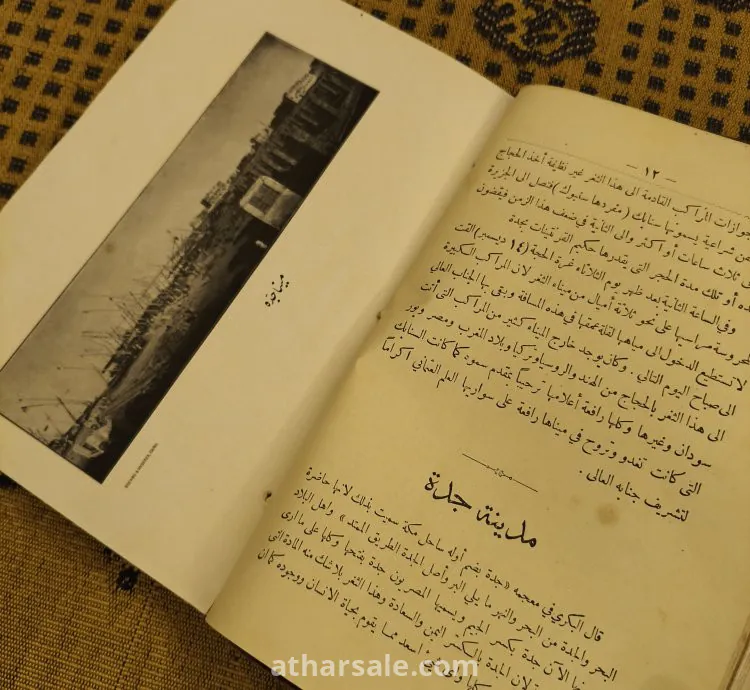 ميناء جدة
— ١٢ —
جوازات المراكب القادمة الى هذا الثغر غير نظيفة أخذ الحجاج
من شراعية يسمونها سنابك (مفردها سنبوك) فتصل الى الجزيرة
ثلاث ساعات أو أكثر والى الثانية في ضعف هذا الزمن فيقضون
هذه أو تلك مدة الحجر التى يقدرها حكيم القرنتينات بجدة
وفى الساعة الثانية بعد ظهر يوم الثلاثاء غرة الحجة (١٤ ديسمبر) القت
المحروسة مراسيها على نحو ثلاثة أميال من ميناء الثغر لان المراكب الكبيرة
لا تستطيع الدخول الى مياهها لقلة عمقها فى هذه المسافة وبقى بها الجناب العالى
الى صباح اليوم التالي . وكان يوجد خارج الميناء كثير من المراكب التى أتت
الى هذا الثغر بالحجاج من الهند والروسيا وتركيا وبلاد المغرب ومصر وبور
سودان وغيرها وكلها رافعة أعلامها ترحيباً بمقدم سموه كما كانت السنابك
التى كانت تغدو وتروح في ميناها رافعة على سواريها العلم العثمانى اكراماً
لتشريف جنابه العالى .
مدينة جدة
قال البكرى فى معجمه «جدة بضم أوله ساحل مكة سميت بذلك لانها حاضرة
البحر والجدة من البحر والنهر ما يلي البر وأصل الجدة الطريق الممتد» وأهل البلاد
الآن جدة بكسر الجيم ويسميها المصريون جدة بفتحها وكلها على ما ارى
لان الجدة بالكسر اليمن والسعادة وهذا الثغر بلا شك منه المادة التى
أسعد مما يقوم بحياة الانسان ووجوده كان
atharsale.com